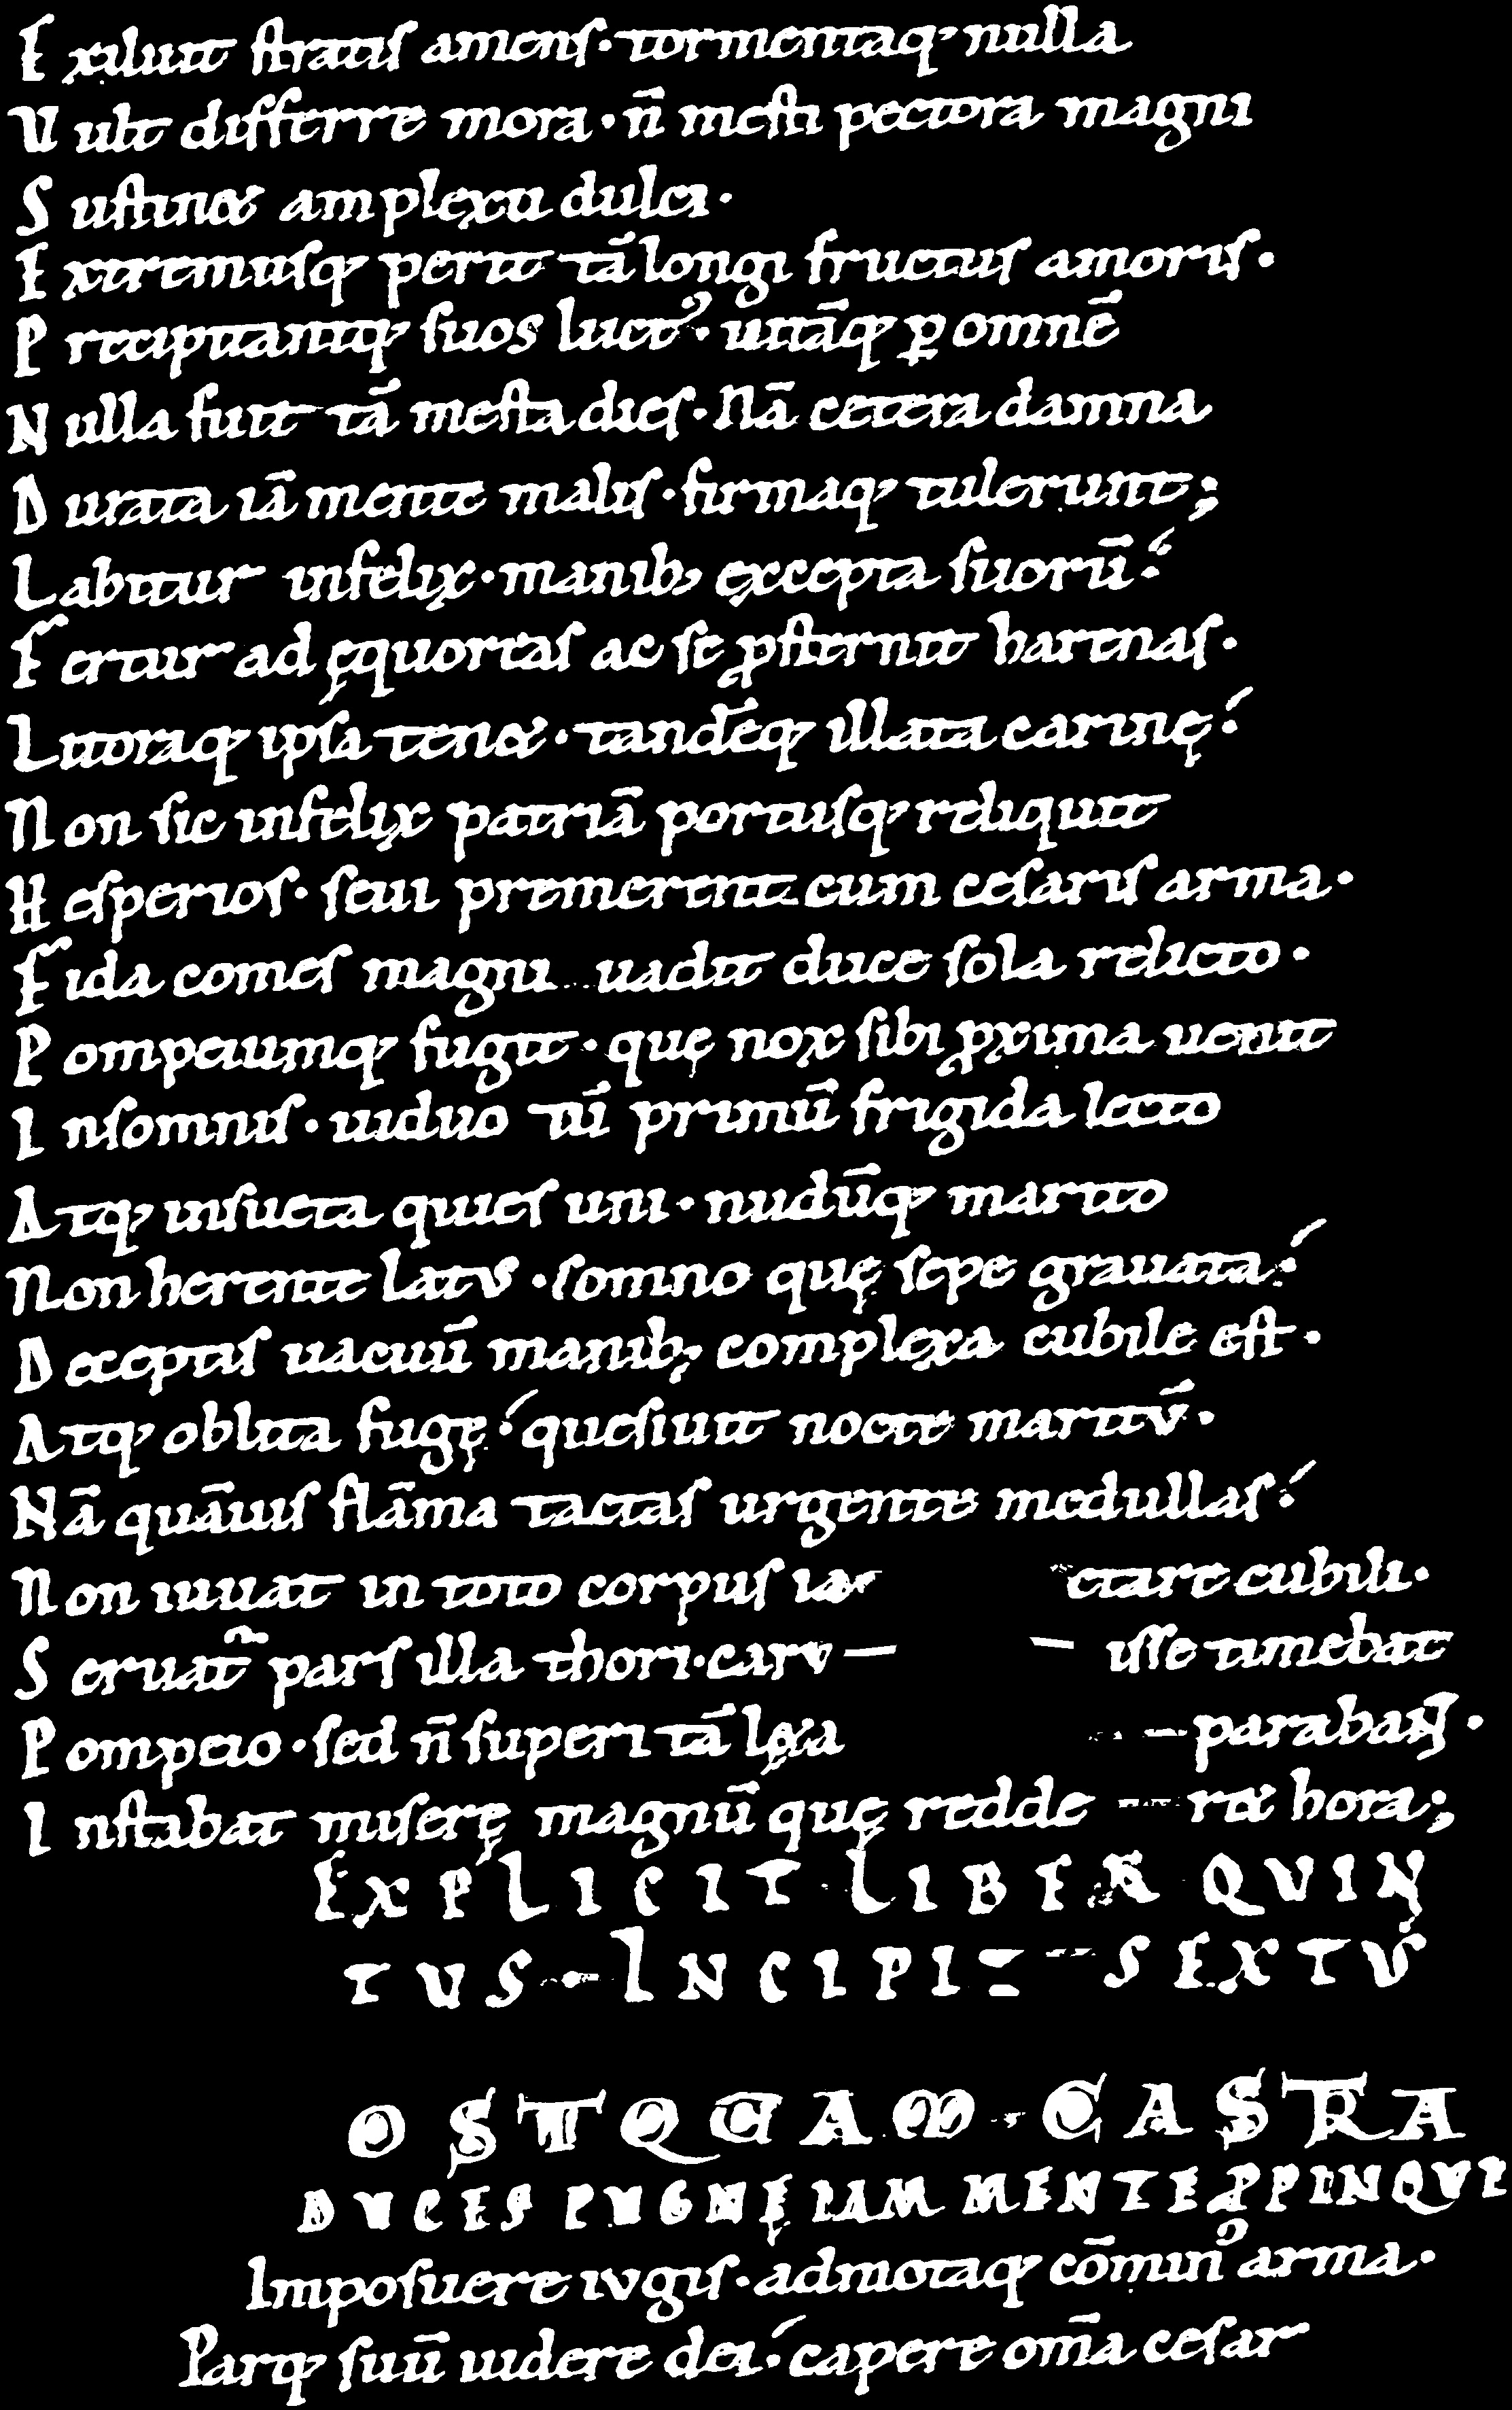 E xiluit stratis amens · tormentaq; nulla
V ult differre mora · n̄ mesti pectora magni
S ustin& amplexu dulci ·
E xtremusq; perit tā longi fructus amoris ·
P recipitantq; suos luct᾽ · uitāq; ꝑ omnē
N ulla fuit tā mesta dies · Nā cetera damna
D urata iā mente malis · firmaq; tulerunt;
L abitur infelix · manib; excepta suorū:
F ertur ad ęquoreas ac se ꝓsternit harenas ·
L itoraq; ipsa ten& · tandēq; illata carinę:
N on sic infelix patriā portusq; reliquit
H esperios · seui premerent cum cesaris arma ·
F ida comes magni uadit duce sola relicto ·
P ompeiumq; fugit · quę nox sibi ꝓxima uenit
I nsomnis · uiduo tū primū frigida lecto
A tq; insueta quies uni · nudūq; marito
N on herente latus · somno quę sepe grauata:
D eceptis uacuū manib; complexa cubile est ·
A tq; oblita fugę: quesiuit nocte maritū ·
N ā quāuis flāma tactas urgente medullas:
N on iuuat in toto corpus ia ctare cubili ·
S eruat᾽ pars illa thori · caru isse timebat
P ompeio · sed n̄ superi tā lęta parabant ·
I nstabat miserę magnū quę redde r& hora;
EXPLICIT LIBER QVIN
TVS · INCIPIT SEXTVS
OSTQUAM · CASTRA
DVCES PVGNĘ IAM MENTE PPINQVI
Imposuere iugis · admotaq; cōmin᾽ arma ·
Parq; suū uidere dei: capere om̄a cesar